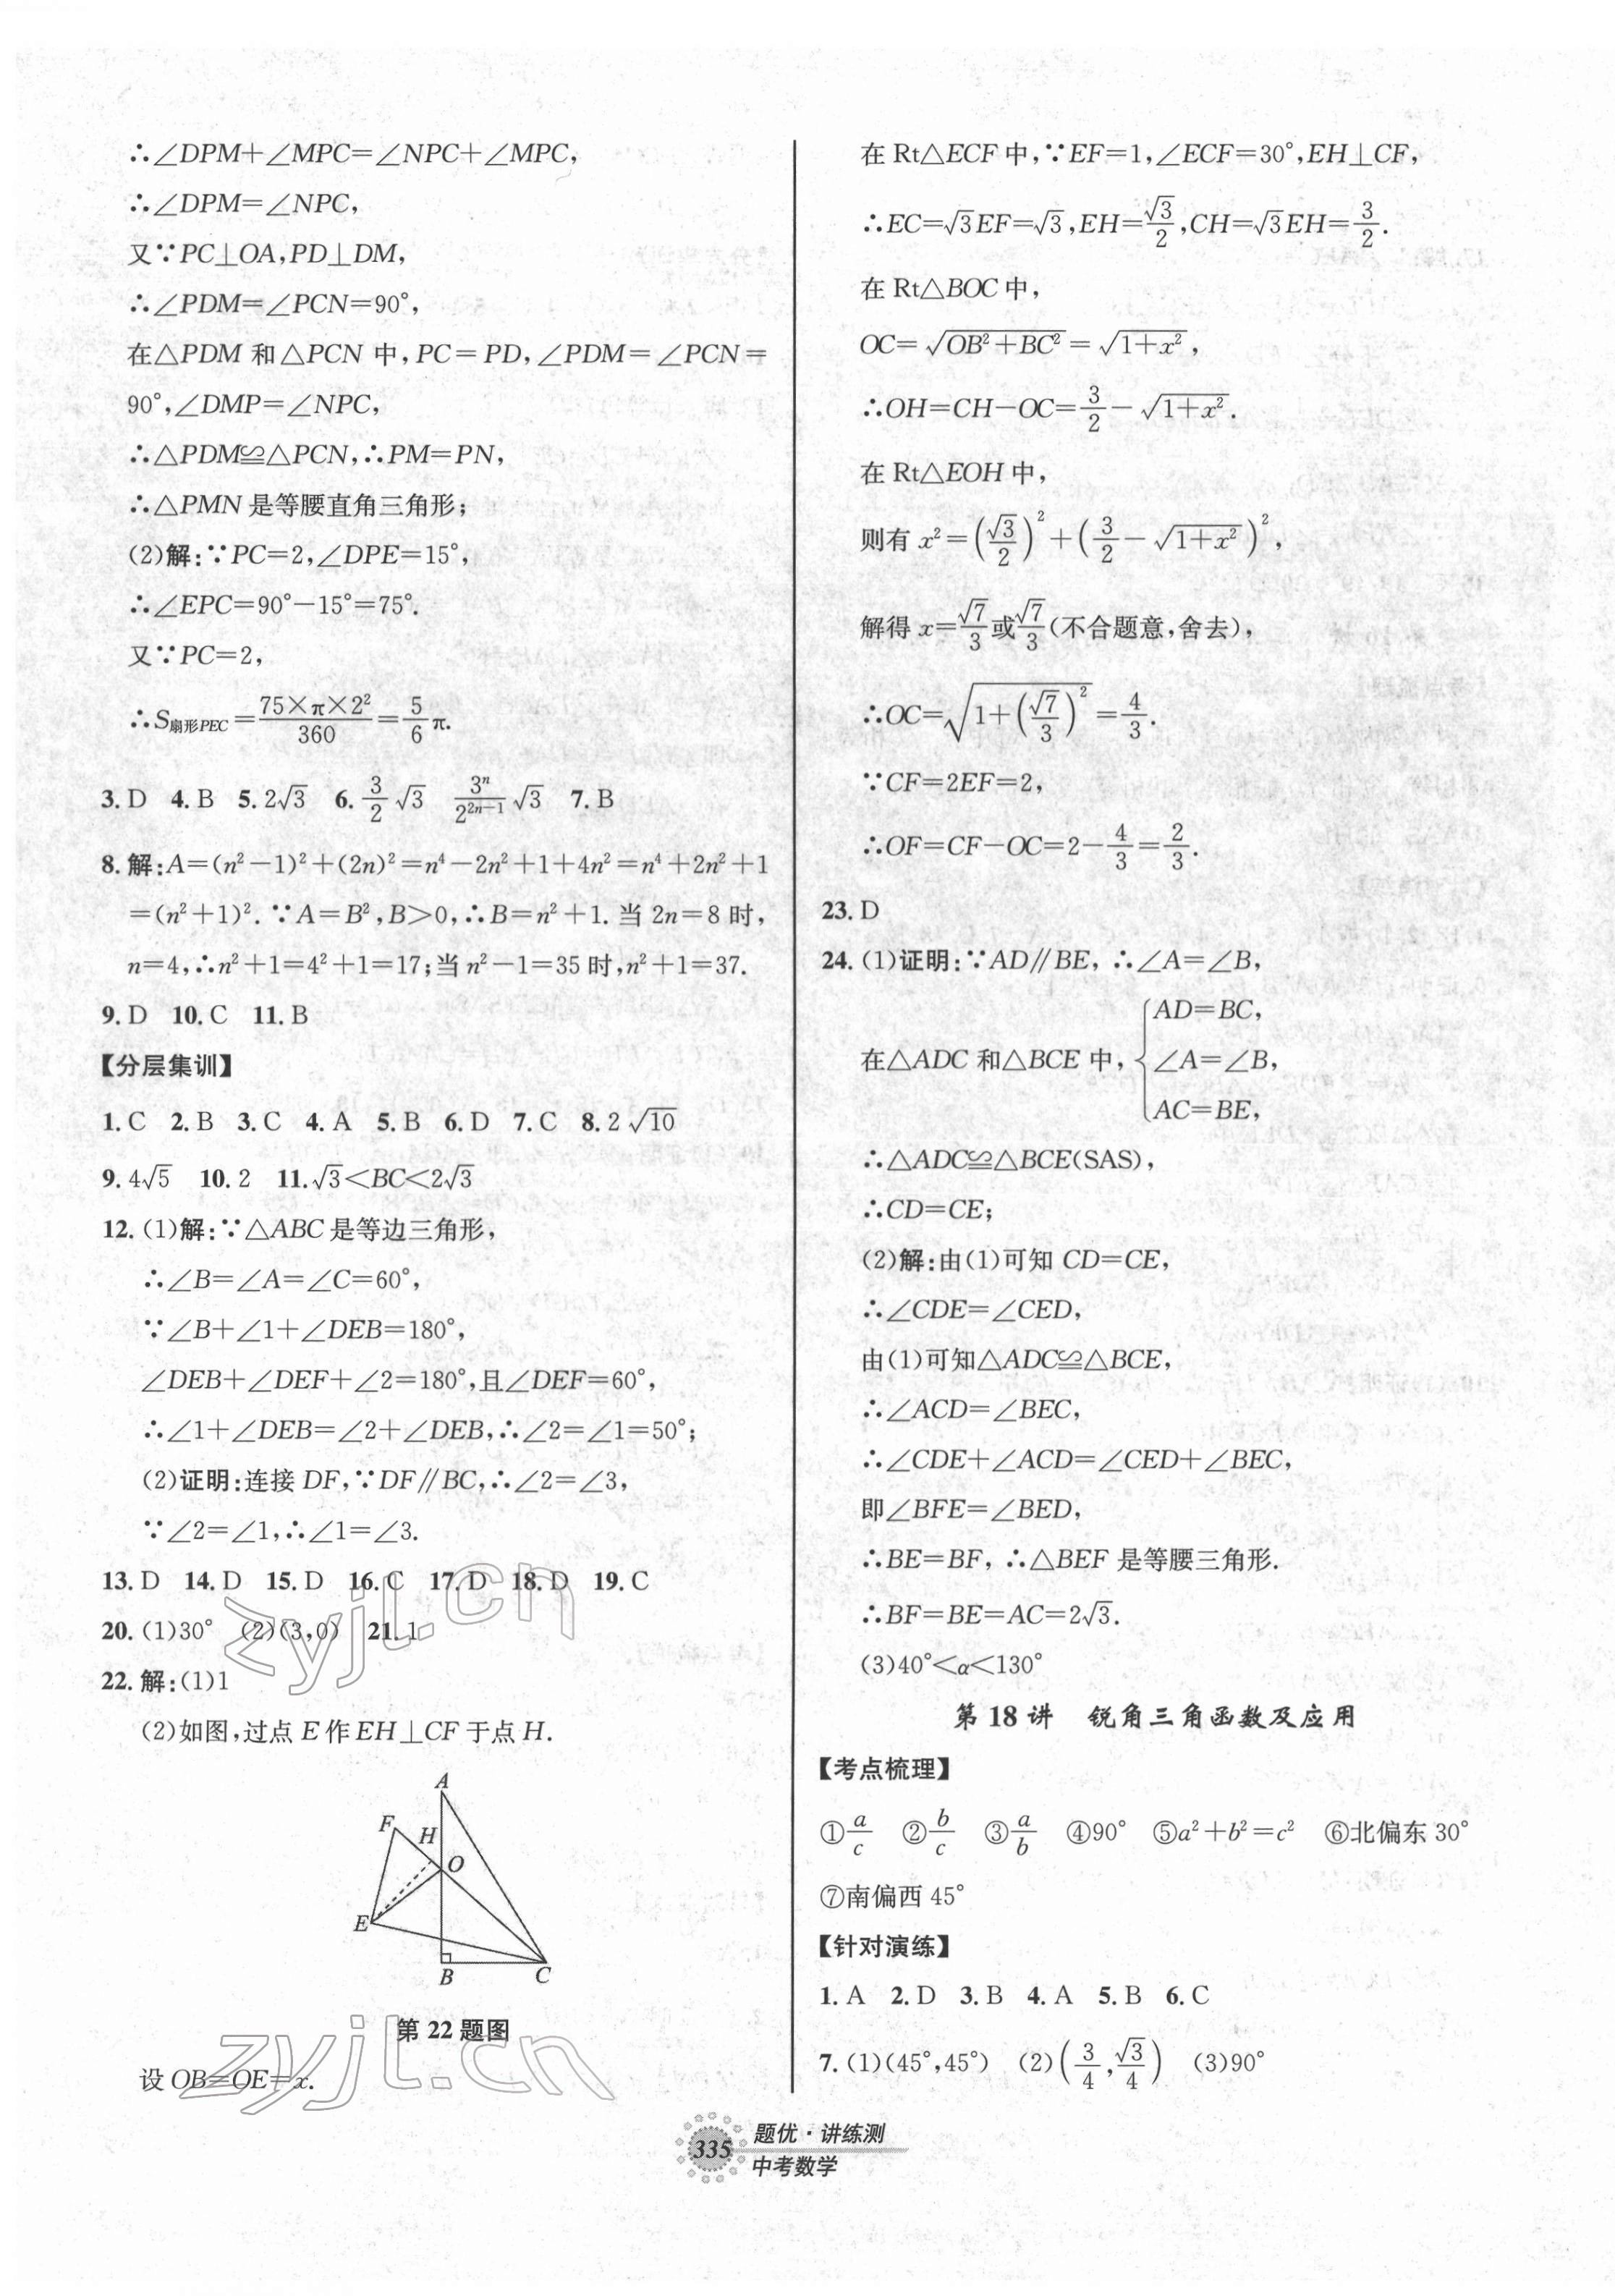 ∴∠DPM+∠MPC=∠NPC+∠MPC,
∴∠DPM=∠NPC,
又∵PC⊥OA,PD⊥DM,
∴∠PDM=∠PCN=90°,
在△PDM 和△PCN 中,PC=PD,∠PDM=∠PCN=
90°,∠DMP=∠NPC,
∴△PDM≌△PCN,∴PM=PN,
∴△PMN 是等腰直角三角形;
(2)解:∵PC=2,∠DPE=15°,
∴∠EPC=90°-15°=75°.
又∵PC=2,
∴S扇形PEC=75×π×2²/360=5/6π.
3. D 4. B 5. 2√3 6. 3/2√3 3ⁿ/2²ⁿ⁻¹√3 7. B
8. 解:A=(n²-1)²+(2n)²=n⁴-2n²+1+4n²=n⁴+2n²+1
=(n²+1)². ∵A=B²,B>0,∴B=n²+1. 当 2n=8 时,
n=4,∴n²+1=4²+1=17;当 n²-1=35 时,n²+1=37.
9. D 10. C 11. B
【分层集训】
1. C 2. B 3. C 4. A 5. B 6. D 7. C 8. 2√10
9. 4√5 10. 2 11. √3<BC<2√3
12. (1)解:∵△ABC 是等边三角形,
∴∠B=∠A=∠C=60°,
∵∠B+∠1+∠DEB=180°,
∠DEB+∠DEF+∠2=180°,且∠DEF=60°,
∴∠1+∠DEB=∠2+∠DEB,∴∠2=∠1=50°;
(2)证明:连接 DF,∵DF∥BC,∴∠2=∠3,
∵∠2=∠1,∴∠1=∠3.
13. D 14. D 15. D 16. C 17. D 18. D 19. C
20. (1)30° (2)(3,0) 21. 1
22. 解:(1)1
(2)如图,过点 E 作 EH⊥CF 于点 H.
A
F
H
O
E
B
C
第 22 题图
设 OB=OE=x.
在 Rt△ECF 中,∵EF=1,∠ECF=30°,EH⊥CF,
∴EC=√3EF=√3,EH=√3/2,CH=√3EH=3/2.
在 Rt△BOC 中,
OC=√(OB²+BC²)=√(1+x²),
∴OH=CH-OC=3/2-√(1+x²).
在 Rt△EOH 中,
则有 x²=(√3/2)²+(3/2-√(1+x²))²,
解得 x=√7/3或√7/3(不合题意,舍去),
∴OC=√(1+(√7/3)²)=4/3.
∵CF=2EF=2,
∴OF=CF-OC=2-4/3=2/3.
23. D
24. (1)证明:∵AD∥BE, ∴∠A=∠B,
在△ADC 和△BCE 中,{AD=BC,
∠A=∠B,
AC=BE,
∴△ADC≌△BCE(SAS),
∴CD=CE;
(2)解:由(1)可知 CD=CE,
∴∠CDE=∠CED,
由(1)可知△ADC≌△BCE,
∴∠ACD=∠BEC,
∴∠CDE+∠ACD=∠CED+∠BEC,
即∠BFE=∠BED,
∴BE=BF, ∴△BEF 是等腰三角形.
∴BF=BE=AC=2√3.
(3)40°<α<130°
第 18 讲 锐角三角函数及应用
【考点梳理】
①a/c ②b/c ③a/b ④90° ⑤a²+b²=c² ⑥北偏东 30°
⑦南偏西 45°
【针对演练】
1. A 2. D 3. B 4. A 5. B 6. C
7. (1)(45°,45°) (2)(3/4,√3/4) (3)90°
335
题优·讲练测
中考数学
zyjl.cn
zyjl.cn